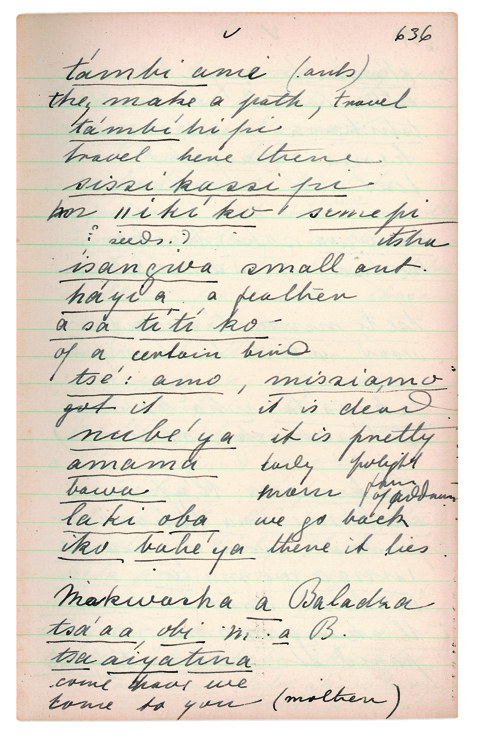 636
támbi ame (ants)
they make a path, travel
támbí hi pi
travel here there
sissi kassi pi
por iikí ko sumepi
? seeds.? itsha
ísangwa small ant.
háyi á a feather
a sa títí ko
of a certain bird
tsé: amo, missiámo
got it it is dead
nubé'ya it is pretty
amama lady polight
bawa mam form of address
laki oba we go back
iko babé'ya there it lies
Makwasha a Baladza
tsá'aa, obi m. a B.
tsaaiyatina
come have we
come to you (mother)